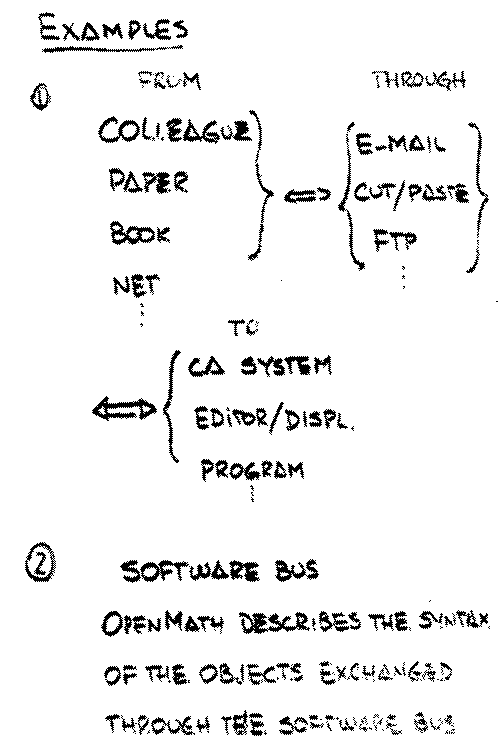 EXAMPLES
FROM THROUGH
① COLLEAGUE E-MAIL
PAPER ⇔ CUT/PASTE
BOOK FTP
NET
TO
CA SYSTEM
⇔ EDITOR/DISPL.
PROGRAM
② SOFTWARE BUS
OPENMATH DESCRIBES THE SYNTAX
OF THE OBJECTS EXCHANGED
THROUGH THE SOFTWARE BUS